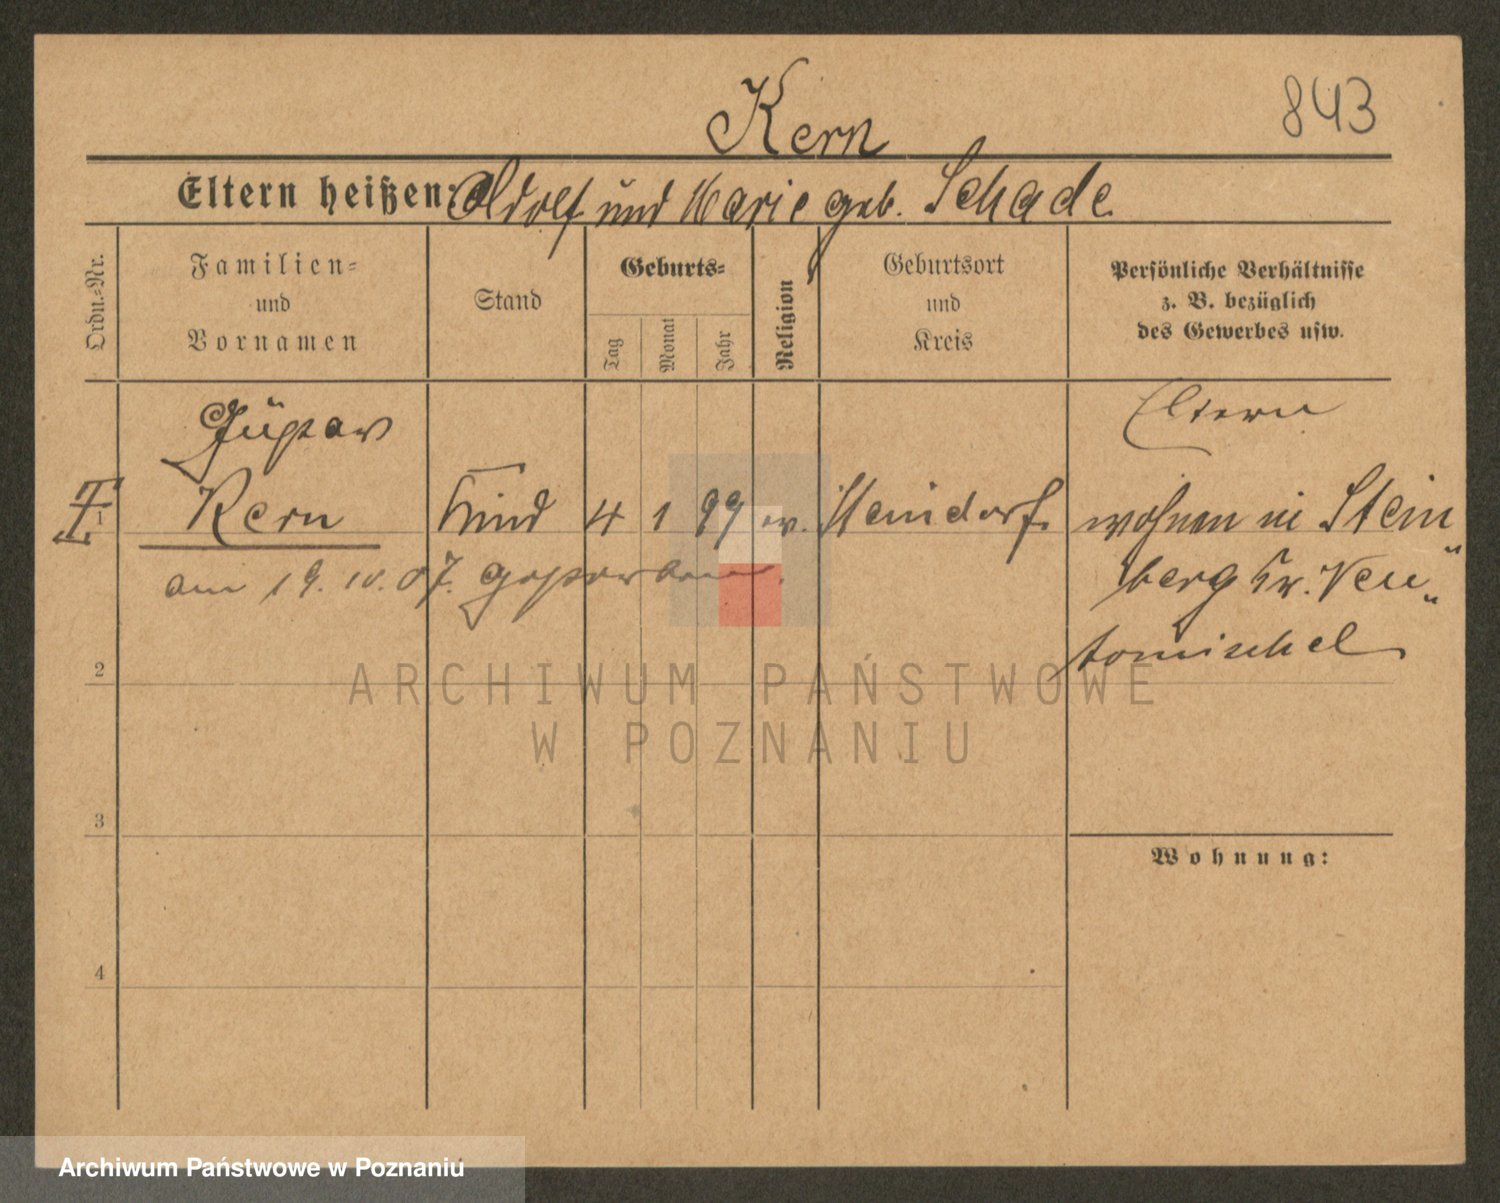 843
Kern
Eltern heißen: Adolf und Marie geb. Schade
Ordn.-Nr.
Familien- und Vornamen
Stand
Geburts-
Tag
Monat
Jahr
Religion
Geburtsort und Kreis
Persönliche Verhältnisse
z. B. bezüglich
des Gewerbes usw.
Gustav
Eltern
1 Kern Kind 4 1 99 ev. Steindorf. wohnen in Stein
am 19. 10. 07. gestorben.
berg Kr. Neu-
tomischel
2
3
Wohnung:
4
ARCHIWUM PAŃSTWOWE
W POZNANIU
Archiwum Państwowe w Poznaniu